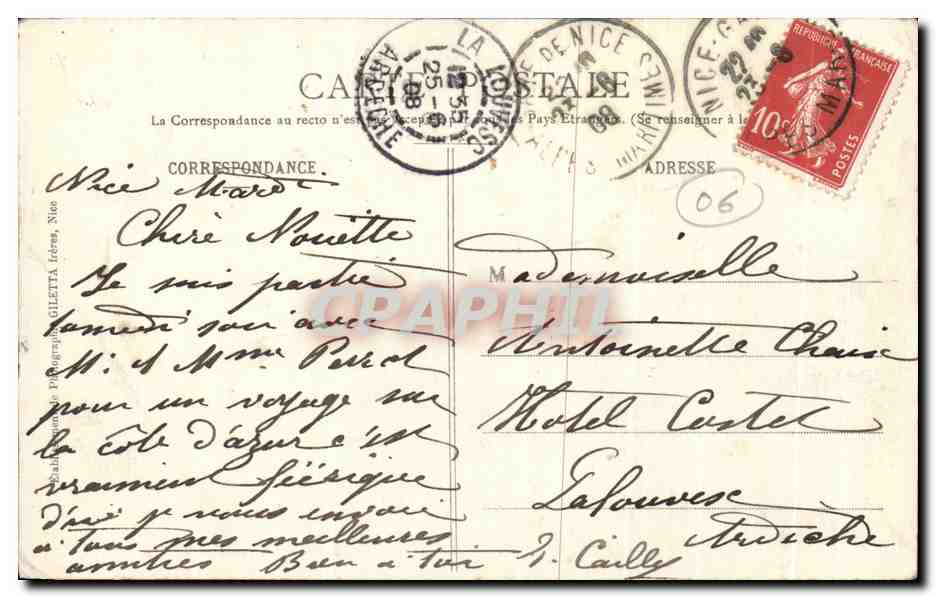 CARTE POSTALE
La Correspondance au recto n'est pas acceptée par tous les Pays Etrangers. (Se renseigner à la
CORRESPONDANCE
ADRESSE
LA LOUVESC
12 35
25 - 8
08
ARDÈCHE
DE NICE
08
ALPES MARITIMES
NICE
REPUBLIQUE FRANÇAISE
10c
POSTES
06
Etablissement de Photographie GILETTA frères, Nice
Nice Mardi
Chère Nouette
Je suis partie
samedi soir avec
M. & Mme Perrot
pour un voyage sur
la côte d'azur c'est
vraiment féérique
d'ici je vous envoie
à tous mes meilleures
amitiés Bien à toi J. Cailly
Mademoiselle
Antoinette Chaix
Hotel Costet
Lalouvesc
Ardèche
CPAPHIL